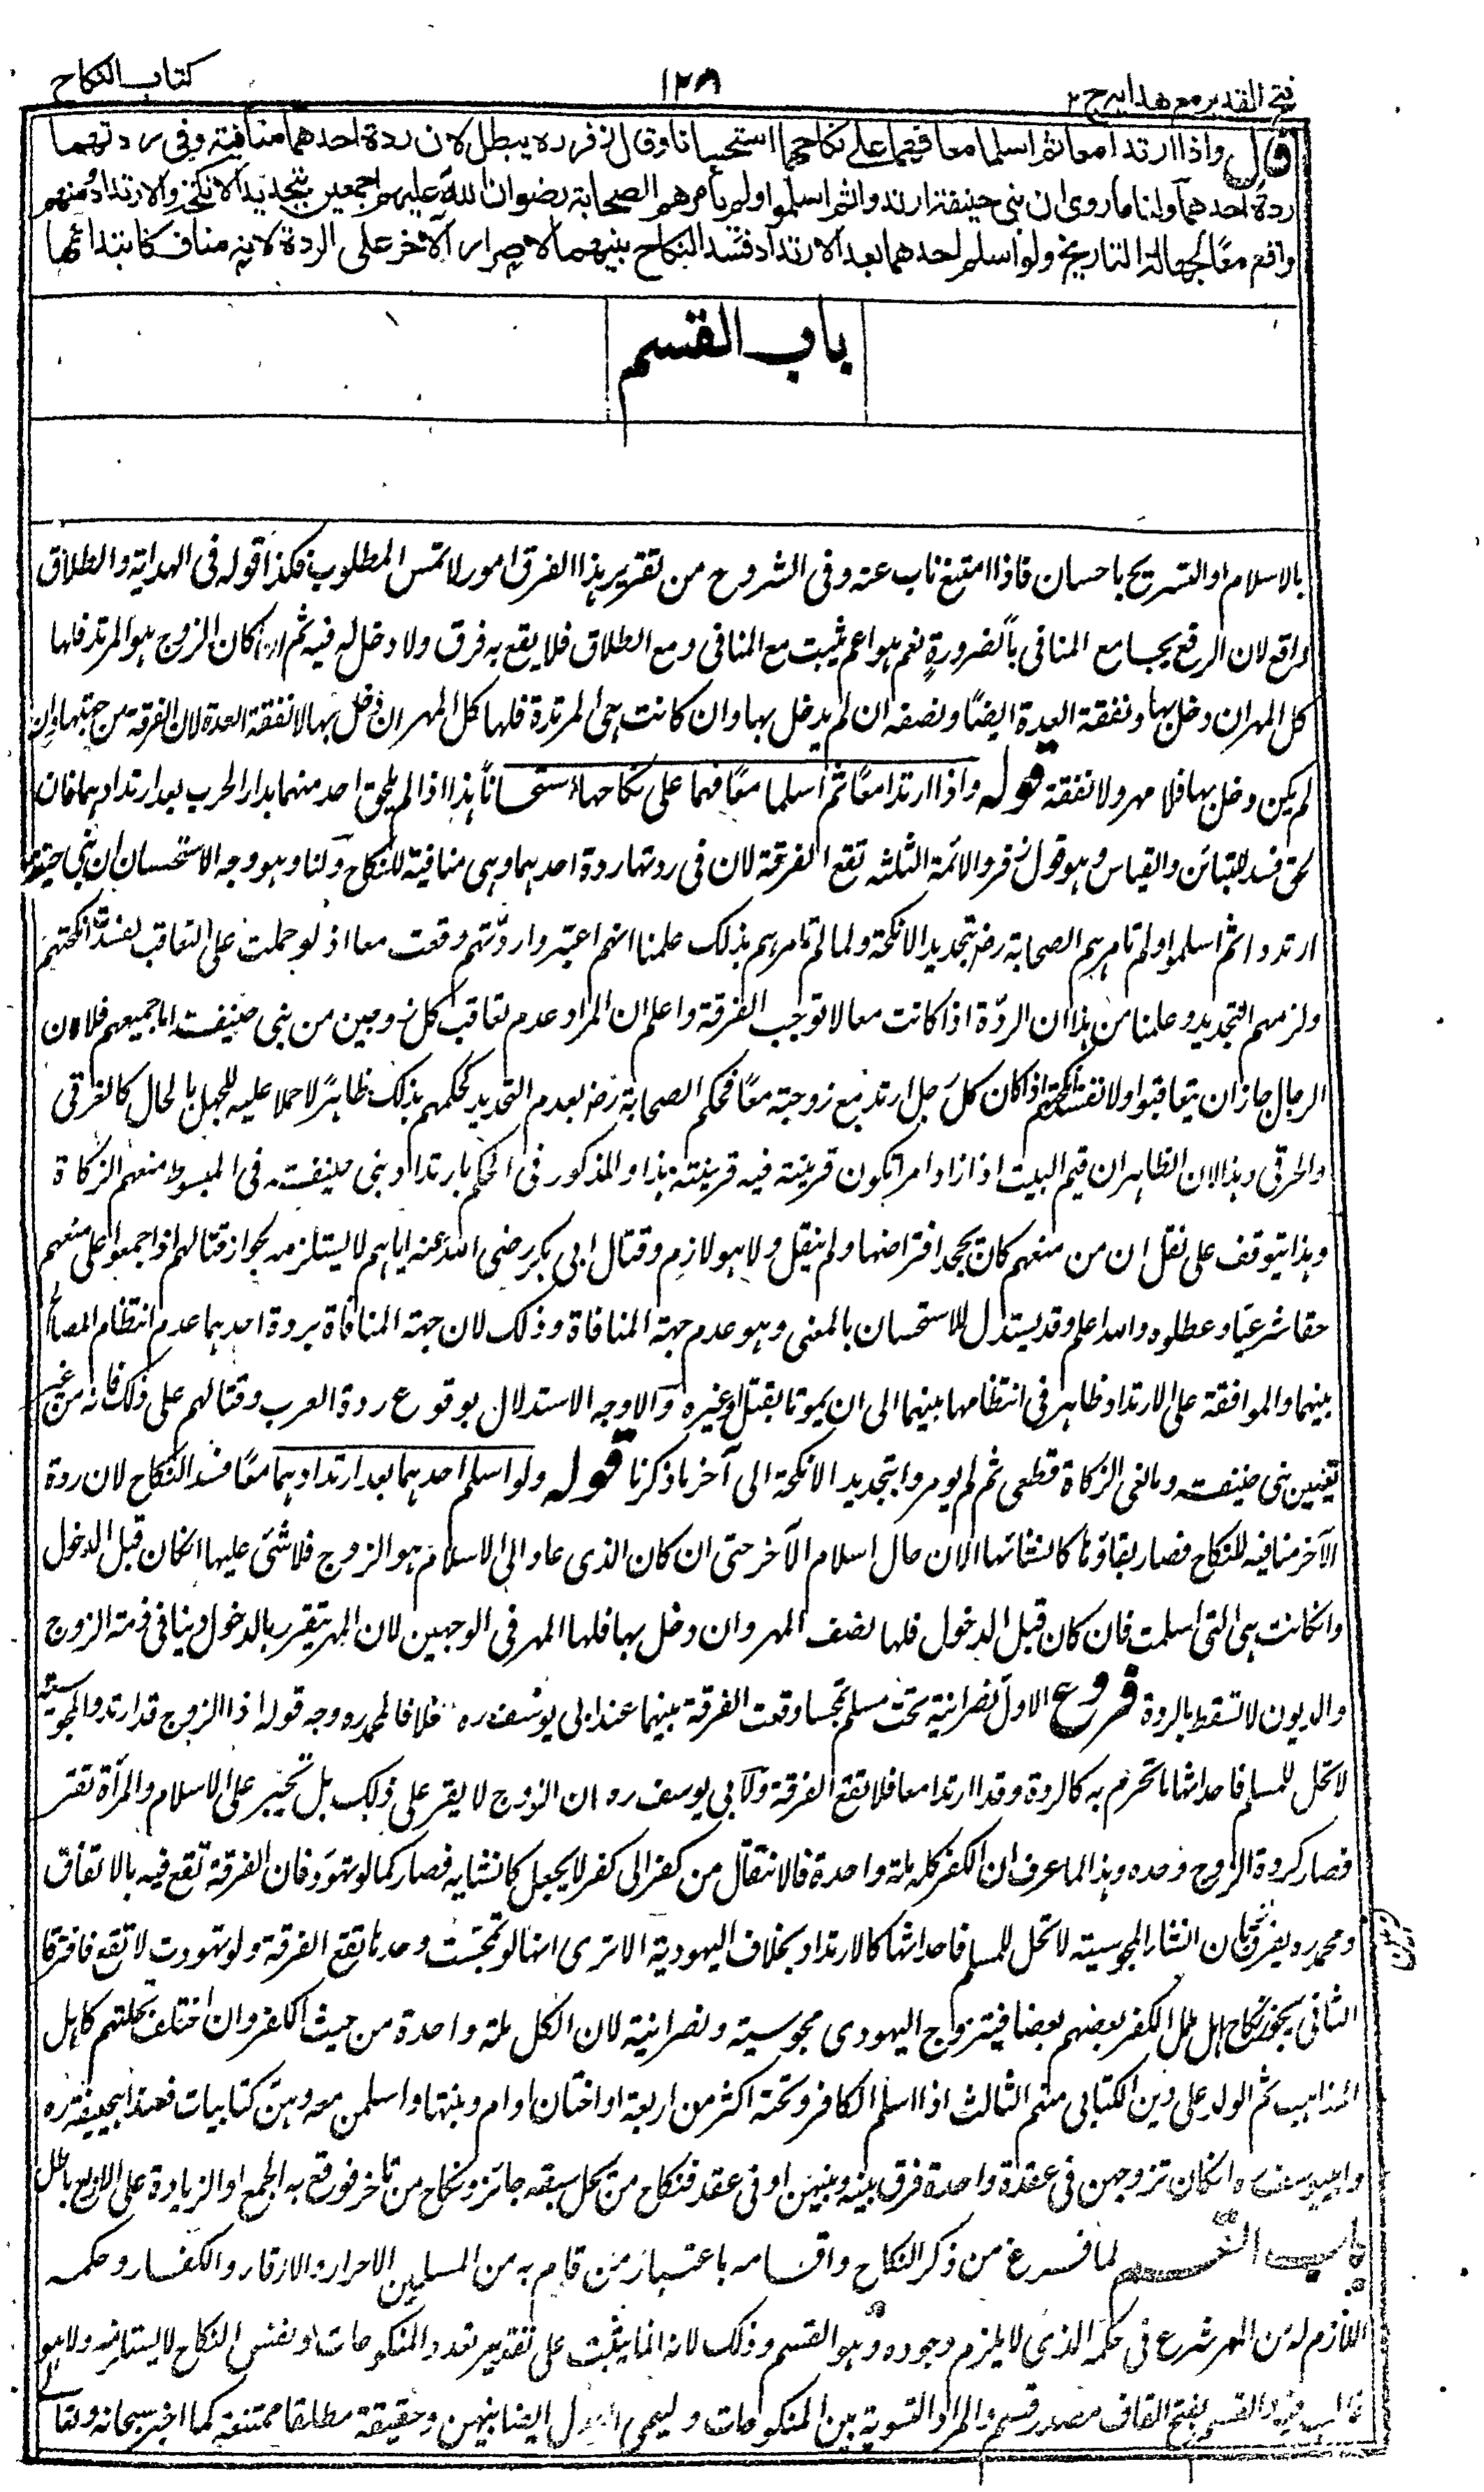 فتح القدير مع هدايه ج ٢
١٢٨
كتاب النكاح
قال واذا ارتدا معا ثم اسلما معا فهما على نكاحهما استحسانا وقال زفر ره يبطل لان ردة احدهما منافية وفى ردتهما
ردة احدهما ولنا ما روى ان بنى حنيفة ارتدوا ثم اسلموا ولم يأمرهم الصحابة رضوان الله عليهم اجمعين بتجديد الانكحة والارتداد منهم
واقع معًا لجهالة التاريخ ولو اسلم احدهما بعد الارتداد فسد النكاح بينهما لاصرار الآخر على الردة لانه مناف كابتدائها
باب القسم
بالاسلام او التسريح باحسان فاذا امتنع ناب عنه وفى الشروح من تقرير هذا الفرق امور لا تمس المطلوب فكذا قوله فى الهداية والطلاق
رافع لان الرفع يجامع المنافى بالضرورة نعم هو اعم يثبت مع المنافى ومع الطلاق فلا يقع به فرق ولا دخل له فيه ثم ان كان الزوج هو المرتد فلها
كل المهر ان دخل بها ونفقة العدة ايضًا ونصفه ان لم يدخل بها وان كانت هى المرتدة فلها كل المهر ان دخل بها لا نفقة العدة لان الفرقة من جهتها وان
لم يكن دخل بها فلا مهر ولا نفقة قوله واذا ارتدا معًا ثم اسلما معًا فهما على نكاحهما استحسانًا هذا اذا لم يلحق احد منهما بدار الحرب بعد ارتدادهما فان
لحق فسد للتبائن والقياس وهو قول زفر والائمة الثلثة تقع الفرقة لان فى ردتهما ردة احدهما وهى منافية للنكاح ولنا وهو وجه الاستحسان ان بنى حنيفة
ارتدوا ثم اسلموا ولم تامرهم الصحابة رض بتجديد الانكحة ولما لم تامرهم بذلك علمنا انهم اعتبروا ردتهم وقعت معا اذ لو حملت على التعاقب لفسدت انكحتهم
ولزمهم التجديد وعلمنا من هذا ان الردّة اذا كانت معا لا توجب الفرقة واعلم ان المراد عدم تعاقب كل زوجين من بنى حنيفة اما جميعهم فلا لان
الرجال جاز ان يتعاقبوا ولا تفسد انكحتهم اذا كان كل رجل ارتد مع زوجته معًا فحكم الصحابة رض بعدم التجديد لحكمهم بذلك ظاهرًا لا حملا عليه للجهل بالحال كالغرقى
والحرقى وهذا لان الظاهر ان قيم البيت اذا اراد امرا تكون قرينته فيه قرينته هذا والمذكور فى الحكم بارتداد بنى حنيفة فى المبسوط منعهم الزكاة
وهذا يتوقف على نقل ان من منعهم كان يجحد افتراضها ولم ينقل ولا هو لازم وقتال ابى بكر رضى الله عنه اياهم لا يستلزمه لجواز قتالهم اذا اجمعوا على منعهم
حقا شرعيا وعطلوه والله اعلم وقد يستدل للاستحسان بالمعنى وهو عدم جهة المنافاة وذلك لان جهة المنافاة بردة احدهما عدم انتظام المصالح
بينهما والموافقة على الارتداد ظاهر فى انتظامها بينهما الى ان يموتا بقتل او غيره والاوجه الاستدلال بوقوع ردة العرب وقتالهم على ذلك فانه من غير
تعيين بنى حنيفة ومانعى الزكاة قطعى ثم لم يومروا بتجديد الانكحة الى آخر ما ذكرنا قوله ولو اسلم احدهما بعد ارتدادهما معًا فسد النكاح لان ردة
الآخر منافيه للنكاح فصار بقاؤها كانشائها الآن حال اسلام الآخر حتى ان كان الذى عاد الى الاسلام هو الزوج فلا شئ عليها ان كان قبل الدخول
وان كانت هى التى اسلمت فان كان قبل الدخول فلها نصف المهر وان دخل بها فلها المهر فى الوجهين لان المهر يتقرر بالدخول دينا فى ذمة الزوج
والديون لا تسقط بالردة فروع الاول نصرانية تحت مسلم تمجسا وقعت الفرقة بينهما عند ابى يوسف ره خلافا لمحمد ره وجه قوله اذ الزوج قد ارتد والمجوسية
لا تحل للمسلم فاحداثها ما تحرم به كالردة وقد ارتدا معا فلا تقع الفرقة ولابى يوسف ره ان الزوج لا يقر على ذلك بل يجبر على الاسلام والمرأة تقر
فصار كردة الزوج وحده وهذا لما عرف ان الكفر كله ملة واحدة فالانتقال من كفر الى كفر لا يجعل كانشايه فصار كما لو تهود فان الفرقة تقع فيه بالاتفاق
ومحمد ره يفرق بان انشاء المجوسية لا تحل للمسلم فاحداثها كالارتداد بخلاف اليهودية الا ترى انها لو تمجست وحدها تقع الفرقة ولو تهودت لا تقع فافترقا
الثانى يجوز نكاح اهل ملل الكفر بعضهم بعضا فيتزوج اليهودى مجوسية ونصرانية لان الكل ملة واحدة من حيث الكفر وان اختلف نحلتهم كاهل
المذاهب ثم الولد على دين الكتابى منهم الثالث اذا اسلم الكافر وتحته اكثر من اربعة او اختان او ام وبنتها واسلمن معه وهن كتابيات فعند ابيحنيفة ره
وابيوسف ره ان كان تزوجهن فى عقدة واحدة فرق بينه وبينهن او فى عقد فنكاح من يحل سبقه جائز ونكاح من تاخر فوقع به الجمع او الزيادة على الاربع باطل
باب القسم لما فرغ من ذكر النكاح واقسامه باعتبار من قام به من المسلمين الاحرار والارقاء والكفار وحكمه
اللازم له من المهر شرع فى حكمه الذى لا يلزم وجوده وهو القسم وذلك لانه انما يثبت على تقدير تعدد المنكوحات ونفس النكاح لا يستلزمه ولا هو
والقسم بفتح القاف مصدر قسم والمراد التسوية بين المنكوحات ويسمى العدل ايضا بينهن وحقيقة مطلقا ممتنعة كما اخبر سبحانه وتعالى